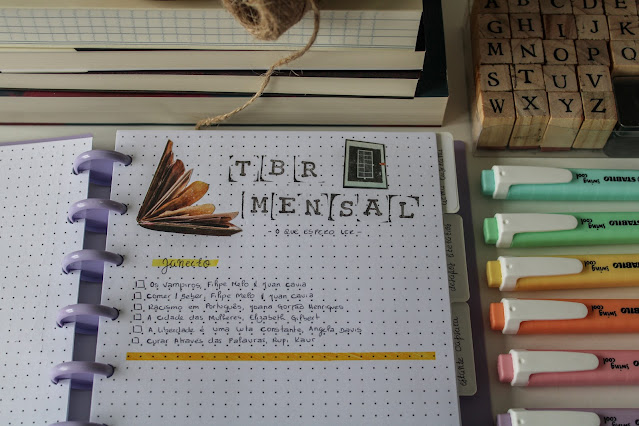 TBR
MENSAL
- O QUE ESPERO LER -
janeiro
Os Vampiros, Filipe Melo e Juan Cavia
Comer / Beber, Filipe Melo e Juan Cavia
Racismo em Português, Joana Gorjão Henriques
A Cidade das Mulheres, Elizabeth Gilbert
A Liberdade é uma luta constante, Angela Davis
Curar Através das Palavras, Rupi Kaur
A B C D E
G H I J K
M N O P Q
S T U V
W X Y Z
STABILO swing cool
STABILO swing cool
STABILO swing cool
STABILO swing cool
STABILO swing cool
swing cool